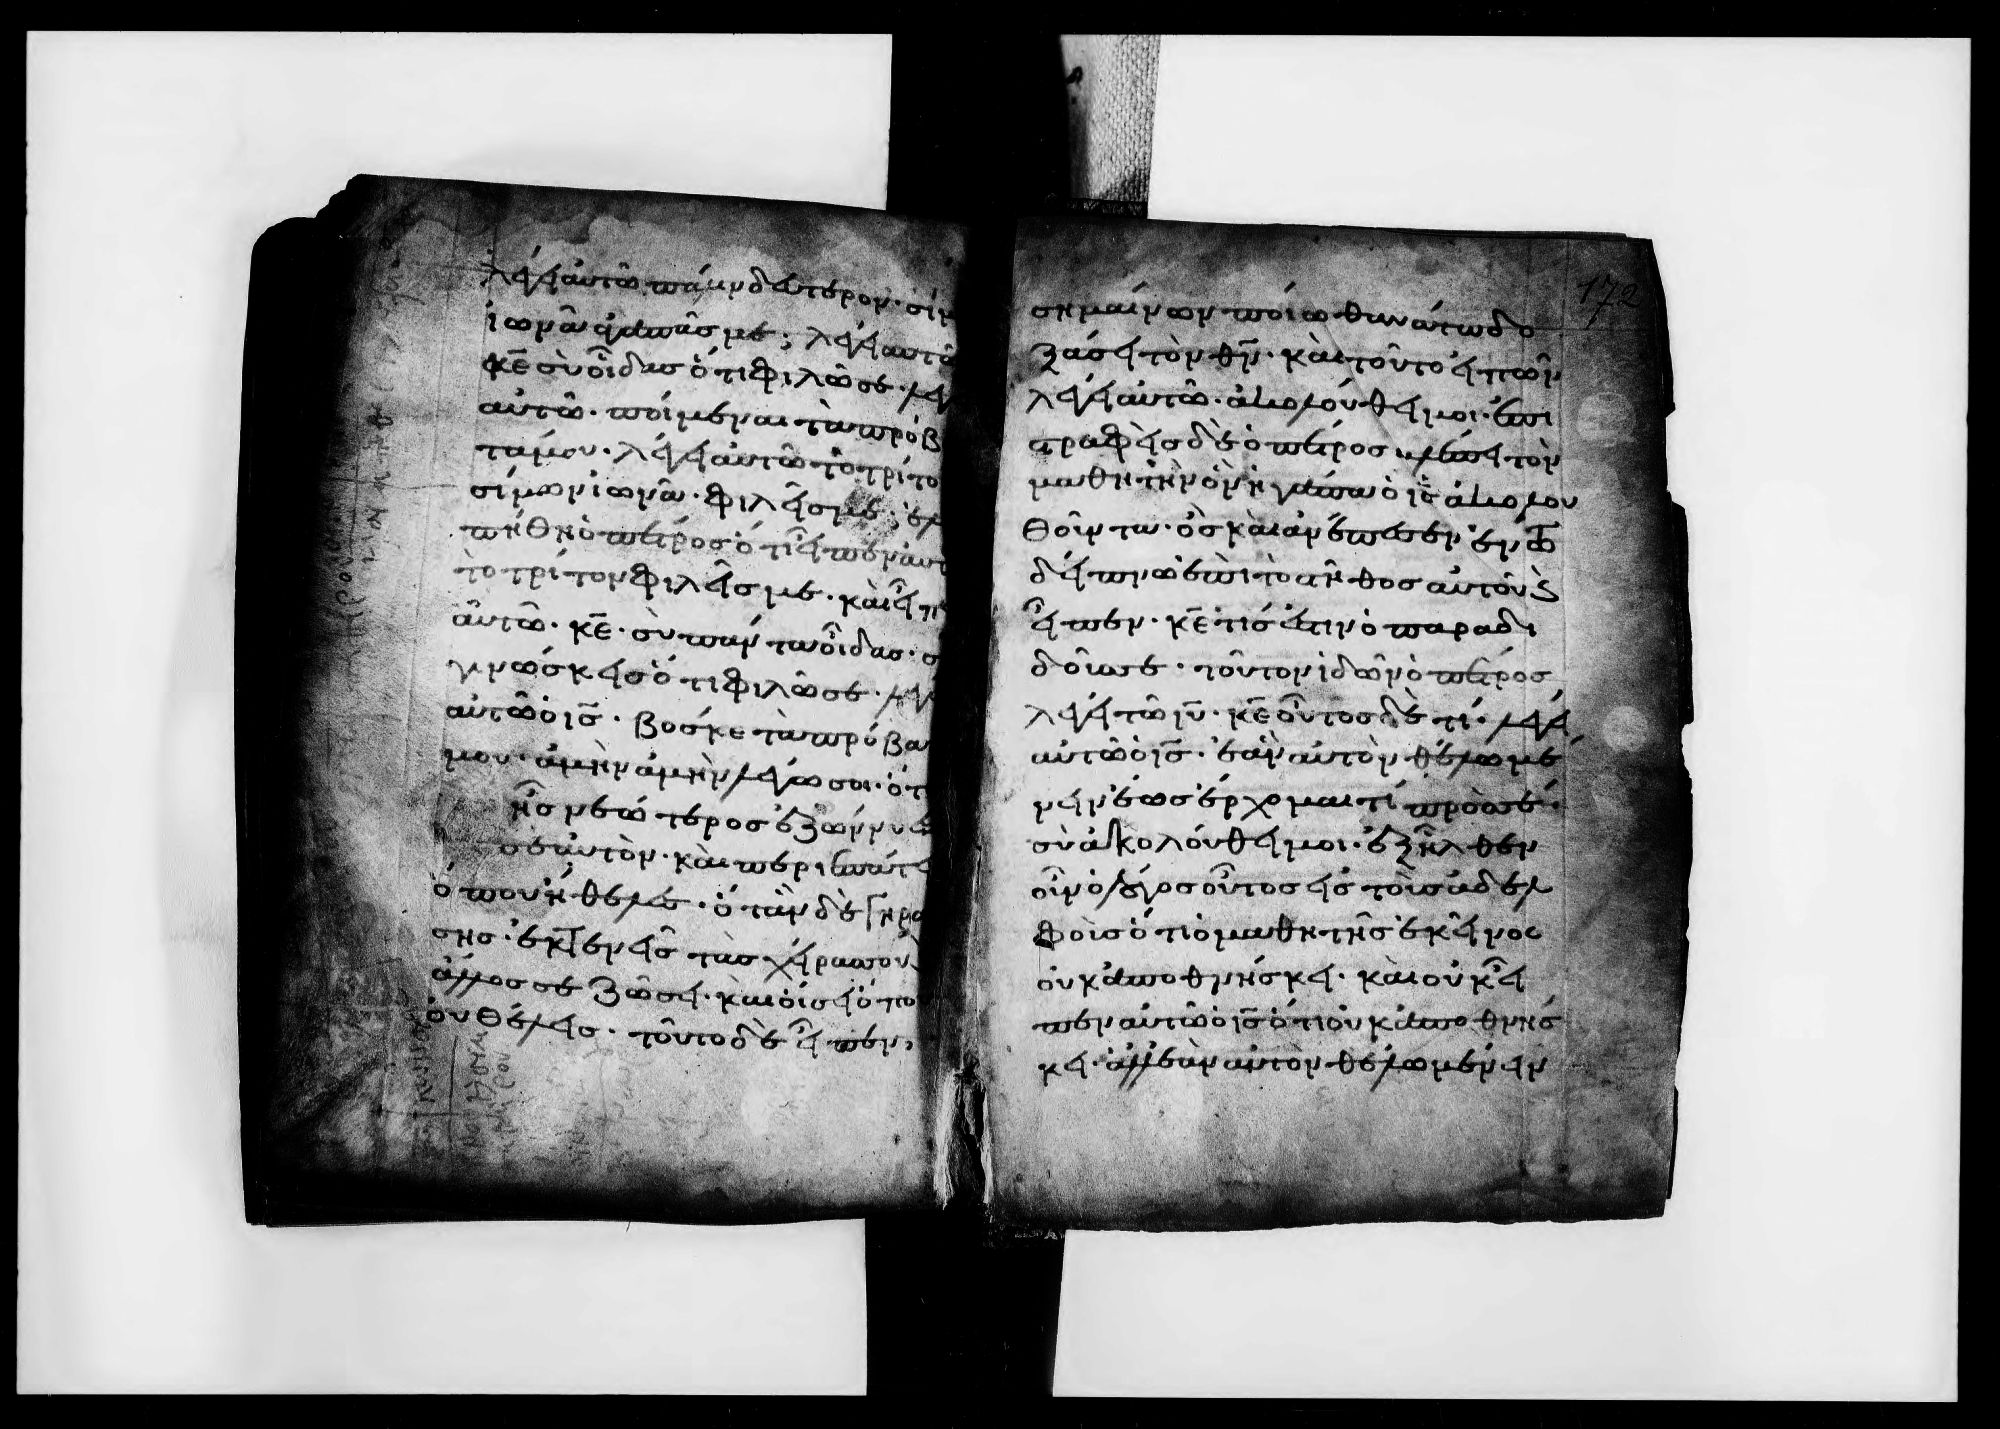 λέγει αὐτῶ πάλιν δεύτερον· σίμ
ἰωνᾶ ἀγαπᾶς με; λέγει αὐτῶ
κε̄ σὺ οἶδας ὅτι φιλῶ σε· λέγ
αὐτῶ· ποίμεναι τὰ πρόβ
τά μου· λέγει αὐτῶ τὸ τρίτο
σίμων ἰωνᾶ· φιλεῖς με; ἐλ
πήθη ὁ πέτρος ὅτι εἶπεν αὐτ
τὸ τρίτον φιλεῖς με· καὶ εἶπ
αὐτῶ· κε̄· σὺ πάντα οἶδας· σ
γινώσκεις ὅτι φιλῶ σε· λέγ
αὐτῶ ὁ ις̄· βόσκε τὰ πρόβα
μου· ἀμὴν ἀμὴν λέγω σοι· ὅτ
ἦς νεώτερος ἐζώννυε
σεαυτὸν· καὶ περιπάτει
ὅπου ἤθελες· ὅταν δὲ γηρά
σης· ἐκτενεῖς τὰς χεῖρας σου
ἄλλος σε ζώσει· καὶ οἴσει ὅπου
οὐ θέλεις· τοῦτο δὲ εἶπεν,
172
σημαίνων ποίω θανάτω δο
ξάσει τὸν θν̄· καὶ τοῦτο εἰπὼν
λέγει αὐτῶ· ἀκολούθει μοι· ἐπι
στραφεὶς δὲ ὁ πέτρος βλέπει τὸν
μαθητὴν ὃν ἠγάπα ὁ ις̄ ἀκολου
θοῦντα· ὃς καὶ ἀνέπεσεν ἐν τῶ
δείπνω ἐπὶ τὸ στῆθος αὐτοῦ ϗ
εἶπεν· κε̄ τίς ἐστιν ὁ παραδι
δούς σε· τοῦτον ἰδὼν ὁ πέτρος
λέγει τῶ ιῡ· κε̄ οὗτος δὲ τί· λέγει
αὐτῶ ὁ ις̄· ἐὰν αὐτὸν θέλω μέ
νειν ἕως ἔρχομαι τί πρὸς σέ·
σὺ ἀκολούθει μοι· ἐξῆλθεν
οὖν ὁ λόγος οὗτος εἰς τοὺς ἀδελ
φοὺς ὅτι ὁ μαθητὴς ἐκεῖνος
οὐκ ἀποθνήσκει· καὶ οὐκ εἶ
πεν αὐτῶ ὁ ις̄ ὅτι οὐκ ἀποθνήσ
κει· ἀλλ' ἐὰν αὐτὸν θέλω μένειν